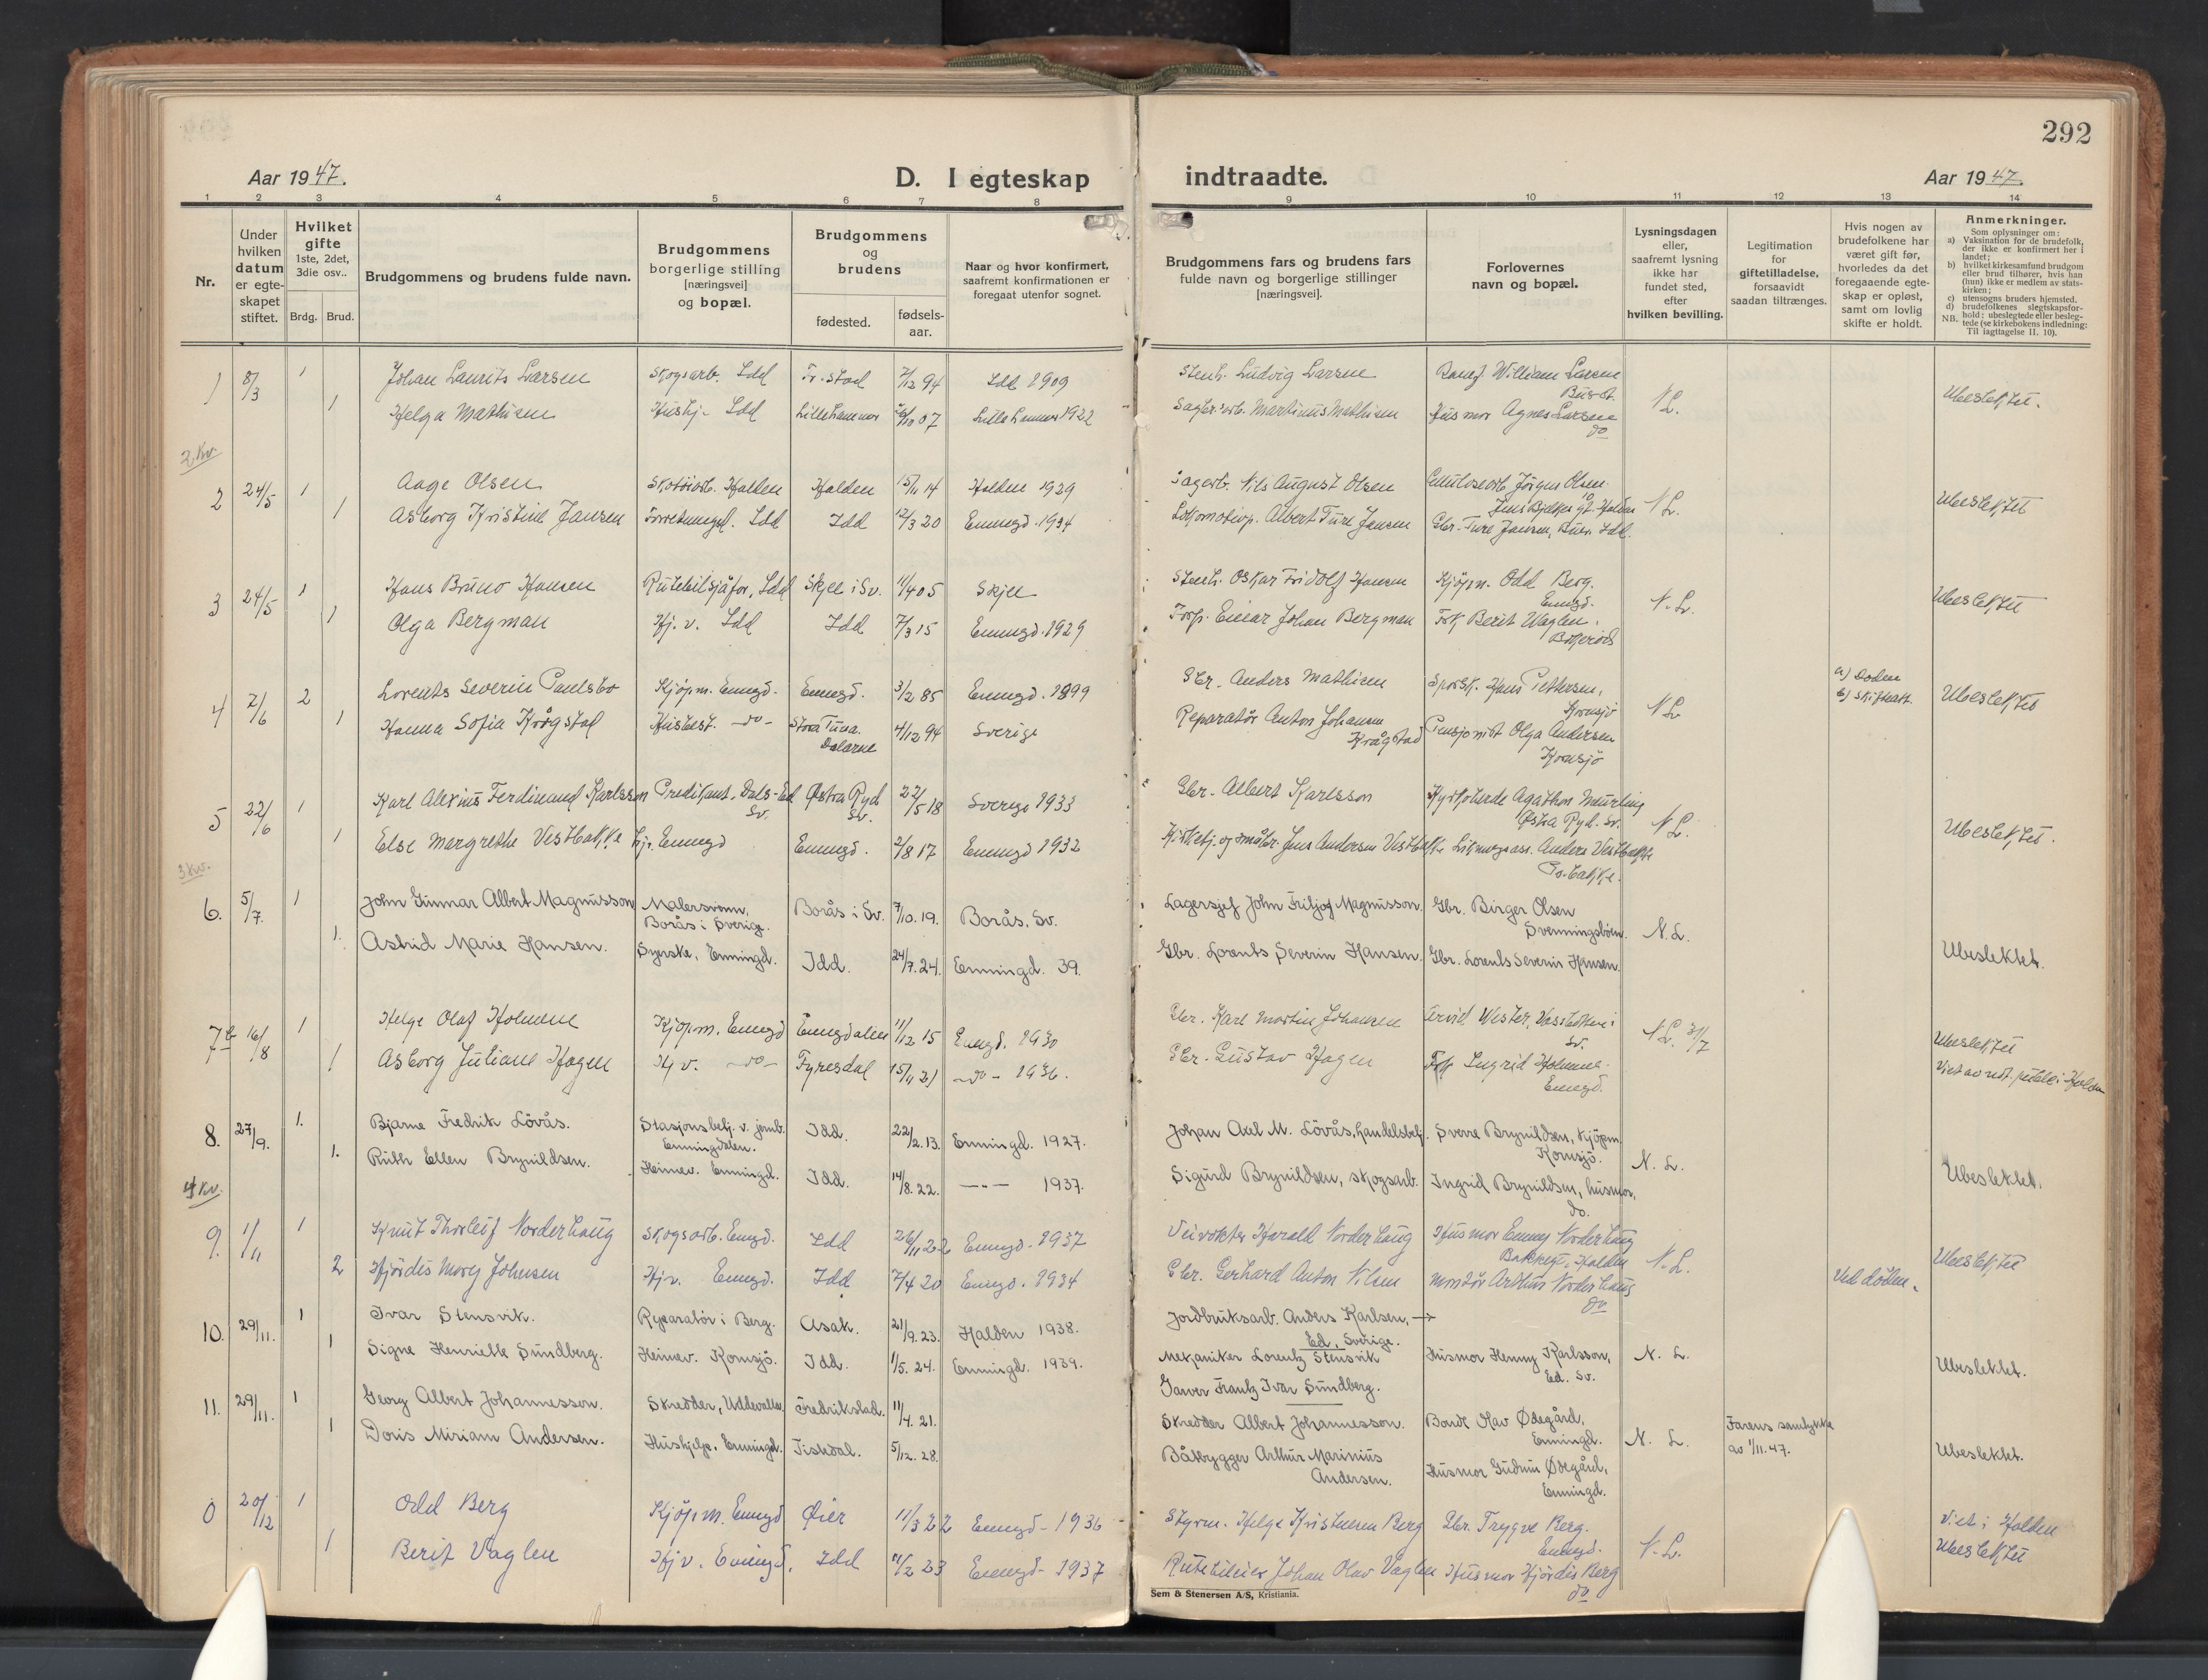 292
Aar 1947.
D. I egteskap indtraadte.
Aar 1947.
1 2 3 4 5 6 7 8 9 10 11 12 13 14
Nr.
Under hvilken datum er egte-skapet stiftet.
Hvilket gifte 1ste, 2det, 3die osv..
Brdg. Brud.
Brudgommens og brudens fulde navn.
Brudgommens borgerlige stilling [næringsvei] og bopæl.
Brudgommens og brudens
fødested.
fødsels-aar.
Naar og hvor konfirmert, saafremt konfirmationen er foregaat utenfor sognet.
Brudgommens fars og brudens fars fulde navn og borgerlige stillinger [næringsvei].
Forlovernes navn og bopæl.
Lysningsdagen eller, saafremt lysning ikke har fundet sted, efter hvilken bevilling.
Legitimation for giftetilladelse, forsaavidt saadan tiltrænges.
Hvis nogen av brudefolkene har været gift før, hvorledes da det foregaaende egte-skap er opløst, samt om lovlig skifte er holdt.
Anmerkninger.
Som oplysninger om:
a) Vaksination for de brudefolk, der ikke er konfirmert her i landet;
b) hvilket kirkesamfund brudgom eller brud tilhører, hvis han (hun) ikke er medlem av stats-kirken;
c) utensogns bruders hjemsted.
d) brudefolkenes slegtskapsfor-hold: ubeslegtede eller besleg-tede (se kirkebokens indledning:
NB. Til iagttagelse II. 10).
1 8/3 1 Johan Laurits Larsen Skogsarb. Idd Fr.stad 7/12 94 Idd 1909 Stenh. Ludvig Larsen William Larsen N L. Ubeslektet.
1 Helga Mathisen Hushj. Idd Lillehammer 07 Lillehammer 1922 Martinus Mathisen Husmor Agnes Larsen do
2 Kv.
2 24/5 1 Aage Olsen Skotöiarb. Halden Halden 15/11 14 Halden 1929 Sagarb. Nils August Olsen Cellulosearb. Jörgen Olsen Jens Bjelkes gt. Halden N L. Ubeslektet
1 Asborg Kristine Jansen Idd Idd 12/3 20 Enningd. 1934 Lokomotivp. Albert Ture Jansen Gbr. Ture Jansen, Idd.
3 24/5 1 Hans Bruno Hansen Rutebilsjåför, Idd Skjee i Sv. 11/4 05 Skjee Stenh. Oskar Fridolf Hansen Kjöpm. Odd Berg. Enngd. N. L. Ubeslektet
1 Olga Bergman Hj. v. Idd Idd 7/3 15 Enningd. 1929 Einar Johan Bergman Frk Berit Vaglen,
4 7/6 2 Lorents Severin Paulsbo Kjöpm. Enngd. Enngd. 3/2 85 Enngd. 1899 Gbr. Anders Mathisen Hans Pettersen, Kornsjö N L a) Döden b) Skifteatt. Ubeslektet
1 Hanna Sofia Krågstad Husbest. -do- Stora Tuna. Dalarne 4/12 94 Sverige Reparatör Anton Johansen Krågstad Pensjonist Olga Andersen Kornsjö
5 22/6 1 Karl Alexius Ferdinand Karlsson Predikant, Dals-Ed Sv. Østra Ryd Sv. 22/5 18 Sverige 1933 Gbr. Albert Karlsson Kyrkoherde Agathon Meurling Østra Ryd. Sv. N L. Ubeslektet.
1 Else Margrethe Vestbakke Hj. Enningd Enningd. 2/8 17 Enningd 1932 Kirketj. og småbr. Jens Andersen Vestbakke Anders Vestbakke
3 Kv.
6. 5/7. 1 John Gunnar Albert Magnusson Malersvenn, Borås i Sverige. Borås i Sv. 7/10. 19. Borås. Sv. Lagersjef John Fritjof Magnusson. Gbr. Birger Olsen N. L.
1. Astrid Marie Hansen. Syerske, Enningd. Idd. 24/7. 24. Enningd. 39. Gbr. Lorents Severin Hansen. Gbr. Lorents Severin Hansen. Ubeslektet.
7 16/8 1 Helge Olaf Holmene Kjöpm. Enngd Enngdalen 11/12 15 Enngd. 1930 Gbr. Karl Martin Johansen Arvid Wester, Sv. N L. 31/7 Ubeslektet
1 Asborg Juliane Hagen Hj v. -do- Fyresdal 15/11 21 -do- 1936. Gbr. Gustav Hagen Frk Ingrid Holmene Enngd. Viet av i Halden
8. 27/9. 1. Bjarne Fredrik Lövås. Stasjonsbetj. v. jernb. Enningdalen. Idd. 22/2. 13. Enningd. 1927. Johan Axel M. Lövås, handelsbetj. Sverre Brynildsen, Kjöpm. Kornsjö. N. L.
1. Ruth Ellen Brynildsen. Heimev. Enningd. Idd. 14/8. 22. -"- 1937. Sigurd Brynildsen, skogsarb. Ingrid Brynildsen, husmor, do. Ubeslektet.
4 Kv.
9. 1/11 1 Knut Thorleif Norderhaug Skogsarb. Enngd. Idd 26/11 22 Enngd. 1937 Veivokter Harald Norderhaug Husmor Emmy Norderhaug Halden N. L. Ubeslektet
2 Hjördis Mary Johnsen Hjv. Enngd. Idd 7/4 20 Enngd. 1934 Gbr. Gerhard Anton Nilsen Montör Arthur Norderhaug do Ved döden.
10. 29/11. 1 Ivar Stensvik. Reparatör i Berg. Asak. 21/9. 23. Halden 1938. Jordbruksarb. Anders Karlsen, → Ed, Sverige.
1 Signe Henriette Sundberg. Heimev. Kornsjö. Idd. 1/5. 24. Enningd. 1939. Mekaniker Lorentz Stensvik Husmor Henny Karlsson, Ed. Sv. N. L. Ubeslektet.
Garver Frantz Ivar Sundberg.
11. 29/11. 1 Georg Albert Johannesson. Skredder, Uddevalla, Fredrikstad. 11/4. 21. Skredder Albert Johannesson. Bonde Olav Ødegård, Enningd. N. L. Farens samtykke av 1/11.47.
1 Doris Miriam Andersen. Hushjelp. Enningd. Tistedal. 5/12. 28. Båtbygger Arthur Marinius Andersen. Husmor Gudrun Ødegård, Enningd. Ubeslektet.
0 20/12 1 Odd Berg Kjöpm. Enngd Øier 11/3 22 Enngd - 1936 Styrm. Helge Kristheim Berg Gbr. Trygve Berg. Enngd. N. L. Viet i Halden
1 Berit Vaglen Hjv. Enngd. Idd 11/2 23 Enngd - 1937 Rutebileier Johan Olav Vaglen Husmor Hjördis Berg do Ubeslektet
Sem & Stenersen A/S, Kristiania.